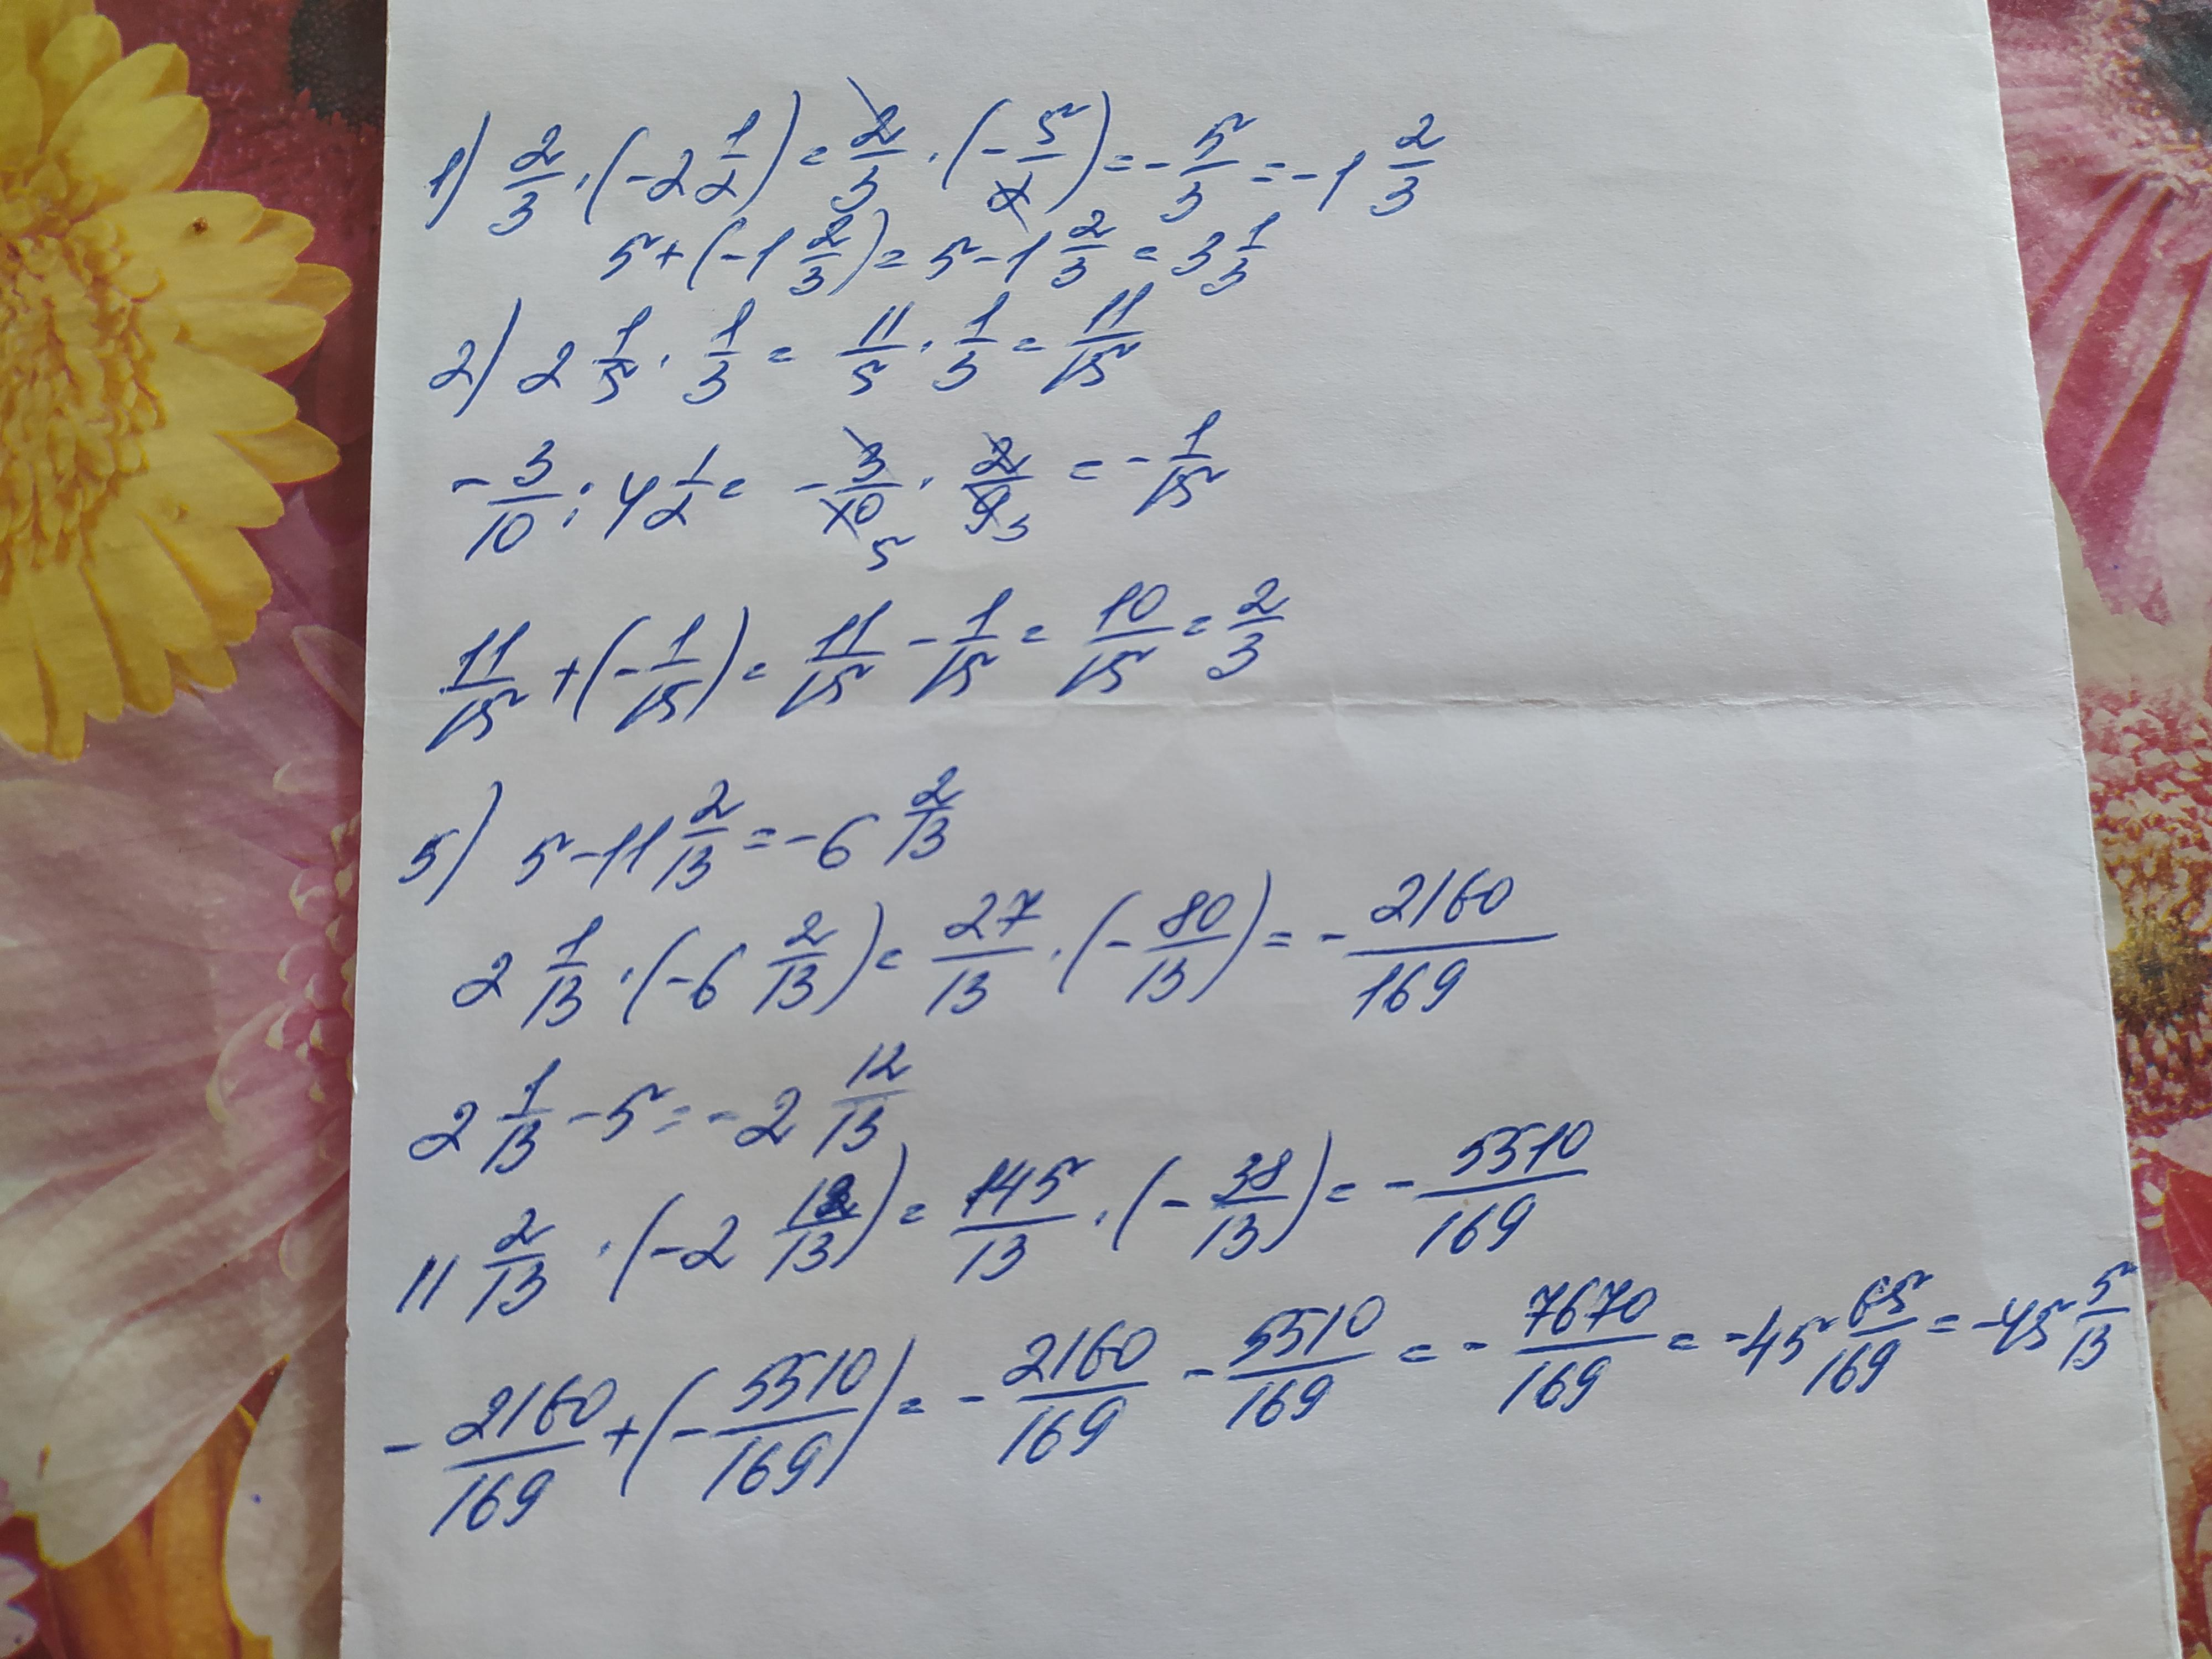 1) 2/3 · (-2 1/2) = 2/3 · (-5/2) = -5/3 = -1 2/3
5 + (-1 2/3) = 5 - 1 2/3 = 3 1/3
2) 2 1/5 · 1/3 = 11/5 · 1/3 = 11/15
-3/10 : 4 1/2 = -3/10 5 · 2/9 3 = -1/15
11/15 + (-1/15) = 11/15 - 1/15 = 10/15 = 2/3
5) 5 - 11 2/13 = -6 2/13
2 1/13 · (-6 2/13) = 27/13 · (-80/13) = -2160/169
2 1/13 - 5 = -2 12/13
11 2/13 · (-2 12/13) = 145/13 · (-38/13) = -5510/169
-2160/169 + (-5510/169) = -2160/169 - 5510/169 = -7670/169 = -45 65/169 = -45 5/13